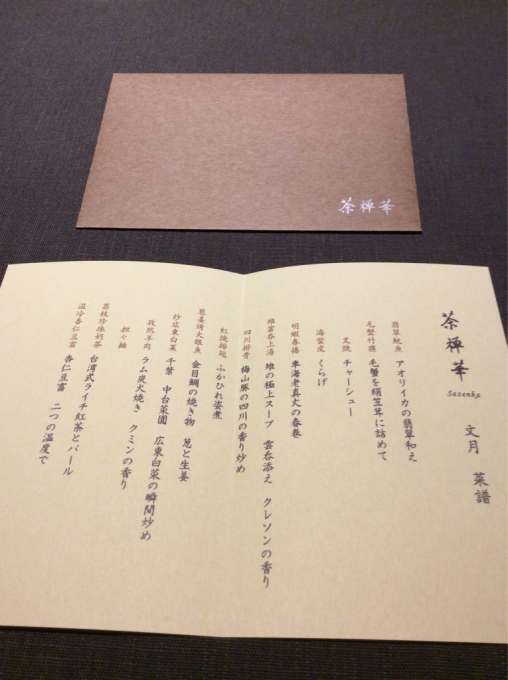 茶禅華
茶禅華
Sazenka
文月 菜譜
翡翠魷魚 アオリイカの翡翠和え
毛蟹竹蓀 毛蟹を絹笠茸に詰めて
叉焼 チャーシュー
海蜇皮 くらげ
明蝦春捲 車海老真丈の春巻
雉雲呑上湯 雉の極上スープ 雲呑添え クレソンの香り
四川排骨 梅山豚の四川の香り炒め
紅焼排翅 ふかひれ姿煮
葱姜焼大眼魚 金目鯛の焼き物 葱と生姜
炒広東白菜 千葉 中台菜園 広東白菜の瞬間炒め
孜然羊肉 ラム炭火焼き クミンの香り
担々麺
茘枝珍珠奶茶 台湾式ライチ紅茶とパール
温冷杏仁豆富 杏仁豆富 二つの温度で